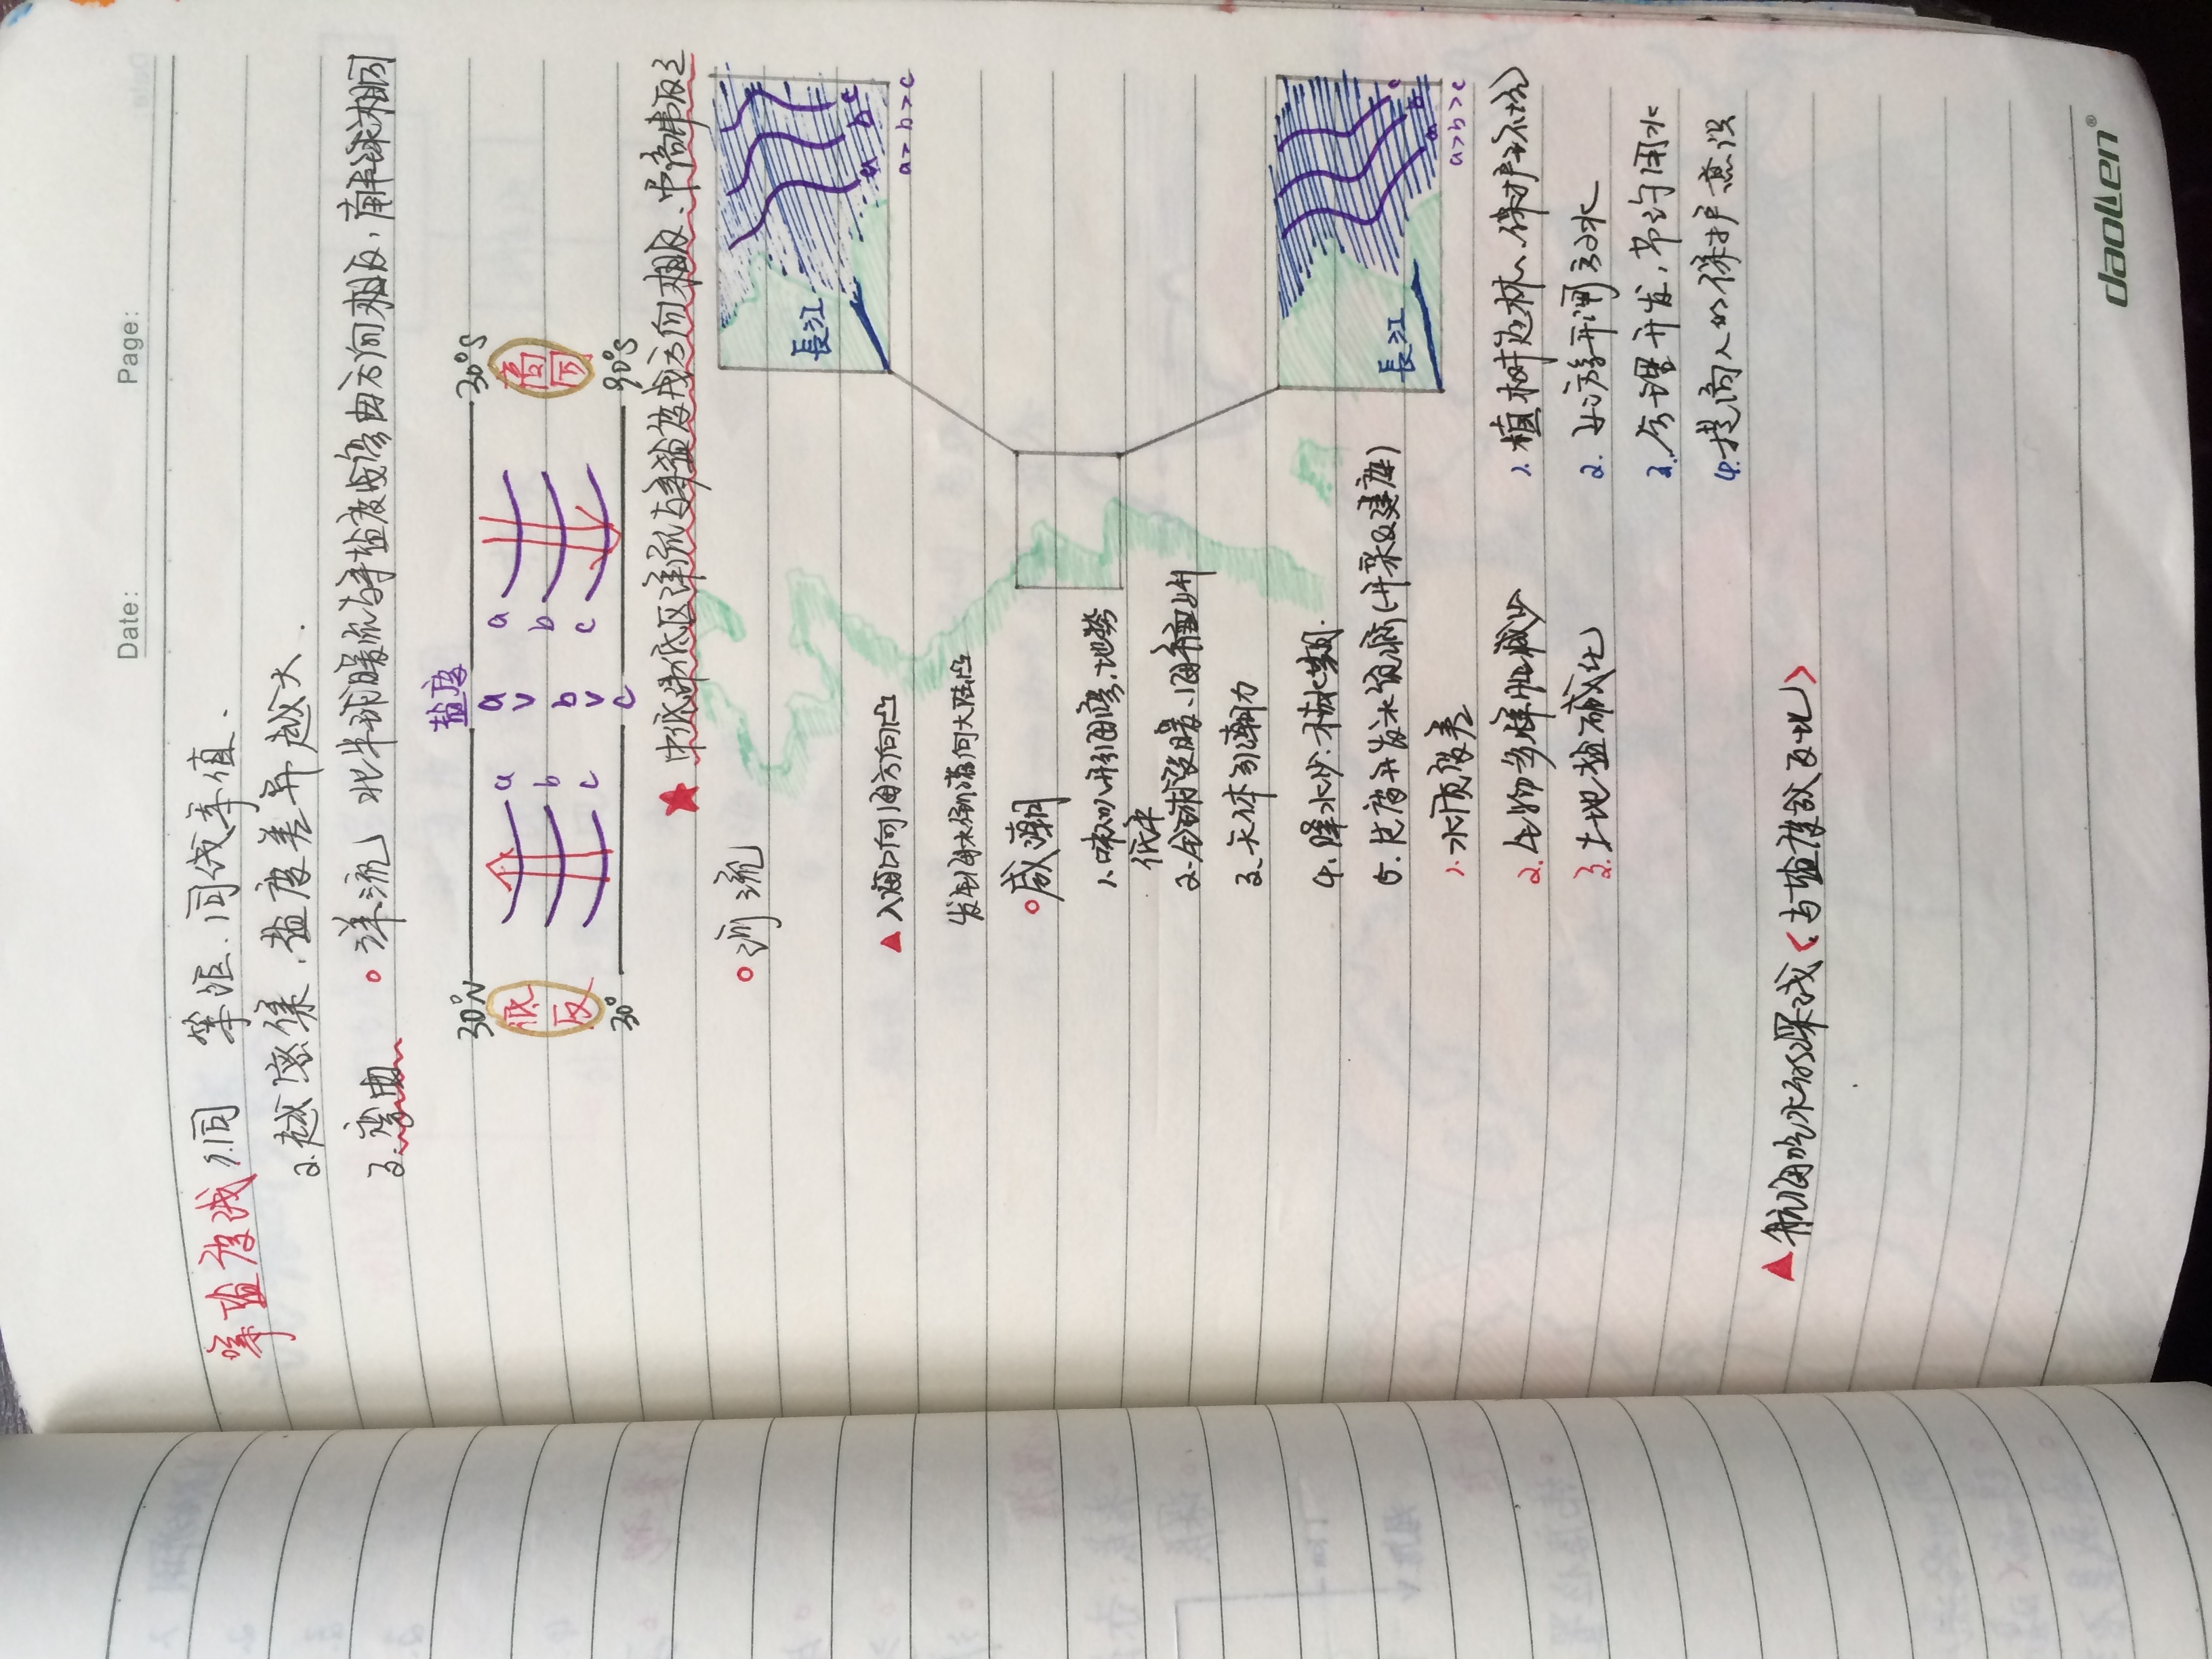 Date: Page:
等盐度线 1.同 等距.同线率值.
2.越密集,盐度差异越大.
3.弯曲 洋流 北半球暖流与等盐度线弯曲方向相反,南半球相同
盐度
30°N 30°S
低反 a b c
a
∨
b
∨
c
a b c 高同
30° 90°S
★ 中低纬低区洋流与等盐度线方向相反、中高纬反之
河流
長江
a b c
a > b > c
▲ 入海口向海方向凸
发生海水倒灌向大陆凸
咸潮
1.喇叭形海湾,地势
低平
2.全球变暖、海平面上升
3.天体引潮力
4.降水少:枯水期.
5.过度开发水资源(开采&建库)
長江
a b c
a > b > c
1.水质变差
2.生物多样性减少
3.土地盐碱化
1.植树造林、保护环境
2.上游开闸放水
3.合理开发,节约用水
4.提高人的保护意识
▲ 航海吃水的深浅<与盐度成反比>
daollen®